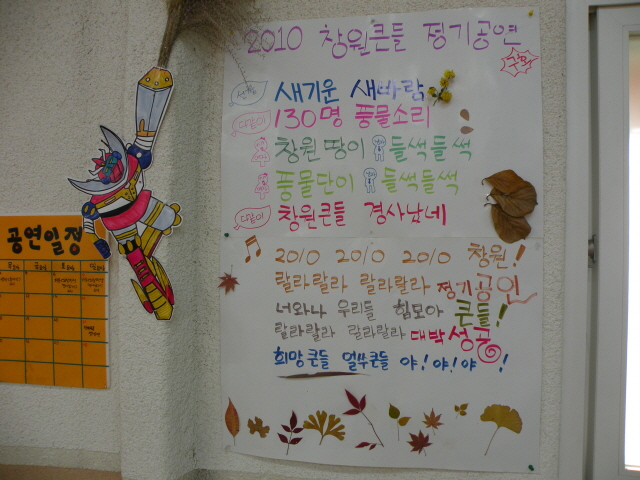 2010 창원큰들 정기공연
구호
새기운 새바람
다같이 130명 풍물소리
창원 땅이 들썩들썩
풍물단이 들썩들썩
다같이 창원큰들 경사났네
2010 2010 2010 창원!
랄라랄라 랄라랄라 정기공연
너와나 우리들 힘모아 큰들!
랄라랄라 랄라랄라 대박성공
희망큰들 얼쑤큰들 야!야!야!
공연일정